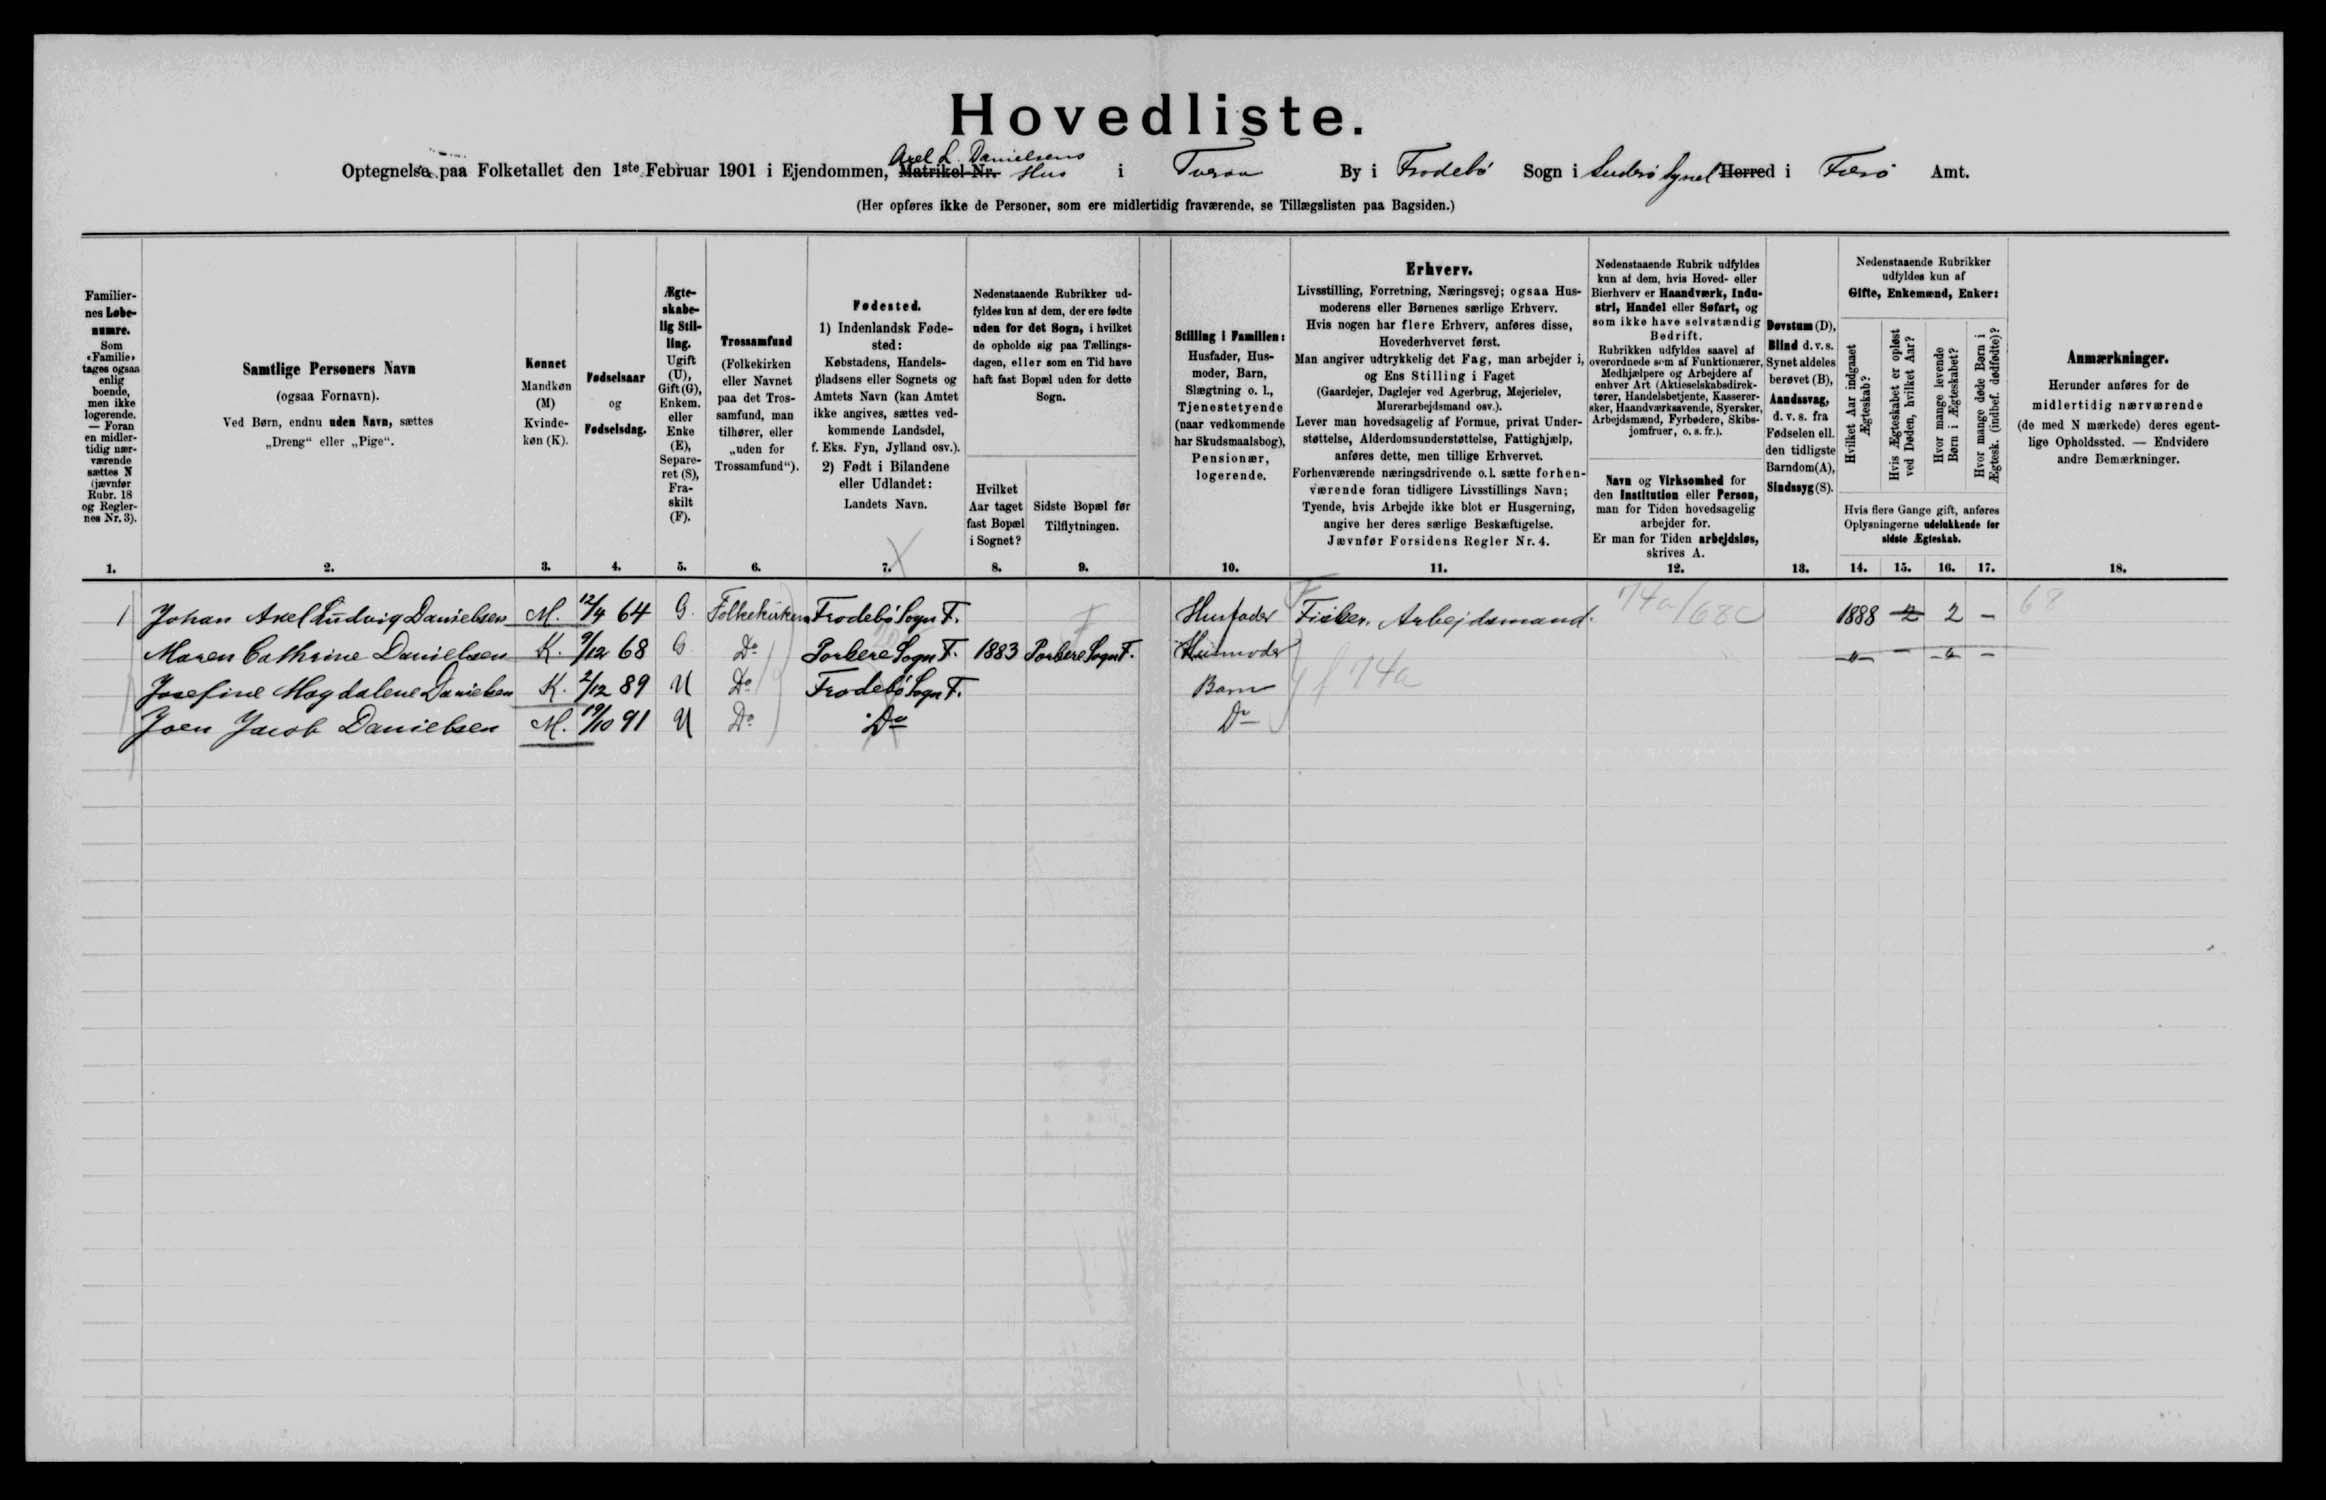 Hovedliste.
Axel L. Danielsens
Optegnelse paa Folketallet den 1ste Februar 1901 i Ejendommen, Matrikel-Nr. Hus i Tveraa By i Frodebø Sogn i Suderø Syssel Herred i Færø Amt.
(Her opføres ikke de Personer, som ere midlertidig fraværende, se Tillægslisten paa Bagsiden.)
Familier-
nes Løbe-
numre.
Som
«Familie»
tages ogsaa
enlig
boende,
men ikke
logerende.
— Foran
en midler-
tidig nær-
værende
sættes N
(jævnfør
Rubr. 18
og Regler-
nes Nr. 3).
1.
Samtlige Personers Navn
(ogsaa Fornavn).
Ved Børn, endnu uden Navn, sættes
„Dreng“ eller „Pige“.
2.
Kønnet
Mandkøn
(M)
Kvinde-
køn (K).
3.
Fødselsaar
og
Fødselsdag.
4.
Ægte-
skabe-
lig Stil-
ling.
Ugift
(U),
Gift (G),
Enkem.
eller
Enke
(E),
Separe-
ret (S),
Fra-
skilt
(F).
5.
Trossamfund
(Folkekirken
eller Navnet
paa det Tros-
samfund, man
tilhører, eller
„uden for
Trossamfund“).
6.
Fødested.
1) Indenlandsk Føde-
sted:
Købstadens, Handels-
pladsens eller Sognets og
Amtets Navn (kan Amtet
ikke angives, sættes ved-
kommende Landsdel,
f. Eks. Fyn, Jylland osv.).
2) Født i Bilandene
eller Udlandet:
Landets Navn.
7.
Nedenstaaende Rubrikker ud-
fyldes kun af dem, der ere fødte
uden for det Sogn, i hvilket
de opholde sig paa Tællings-
dagen, eller som en Tid have
haft fast Bopæl uden for dette
Sogn.
Hvilket
Aar taget
fast Bopæl
i Sognet?
8.
Sidste Bopæl før
Tilflytningen.
9.
Stilling i Familien:
Husfader, Hus-
moder, Barn,
Slægtning o. l.,
Tjenestetyende
(naar vedkommende
har Skudsmaalsbog),
Pensionær,
logerende.
10.
Erhverv.
Livsstilling, Forretning, Næringsvej; ogsaa Hus-
moderens eller Børnenes særlige Erhverv.
Hvis nogen har flere Erhverv, anføres disse,
Hovederhvervet først.
Man angiver udtrykkelig det Fag, man arbejder i,
og Ens Stilling i Faget
(Gaardejer, Daglejer ved Agerbrug, Mejerielev,
Murerarbejdsmand osv.).
Lever man hovedsagelig af Formue, privat Under-
støttelse, Alderdomsunderstøttelse, Fattighjælp,
anføres dette, men tillige Erhvervet.
Forhenværende næringsdrivende o. l. sætte forhen-
værende foran tidligere Livsstillings Navn;
Tyende, hvis Arbejde ikke blot er Husgerning,
angive her deres særlige Beskæftigelse.
Jævnfør Forsidens Regler Nr. 4.
11.
Nedenstaaende Rubrik udfyldes
kun af dem, hvis Hoved- eller
Bierhverv er Haandværk, Indu-
stri, Handel eller Søfart, og
som ikke have selvstændig
Bedrift.
Rubrikken udfyldes saavel af
overordnede som af Funktionærer,
Medhjælpere og Arbejdere af
enhver Art (Aktieselskabsdirek-
tører, Handelsbetjente, Kasserer-
sker, Haandværkssvende, Syersker,
Arbejdsmænd, Fyrbødere, Skibs-
jomfruer, o. s. fr.).
Navn og Virksomhed for
den Institution eller Person,
man for Tiden hovedsagelig
arbejder for.
Er man for Tiden arbejdsløs,
skrives A.
12.
Døvstum (D),
Blind d. v. s.
Synet aldeles
berøvet (B),
Aandssvag,
d. v. s. fra
Fødselen ell.
den tidligste
Barndom (A),
Sindssyg (S).
13.
Nedenstaaende Rubrikker
udfyldes kun af
Gifte, Enkemænd, Enker:
Hvilket Aar indgaaet
Ægteskab?
Hvis Ægteskabet er opløst
ved Døden, hvilket Aar?
Hvor mange levende
Børn i Ægteskabet?
Hvor mange døde Børn i
Ægtesk. (indbef. dødfødte)?
Hvis flere Gange gift, anføres
Oplysningerne udelukkende for
sidste Ægteskab.
14. 15. 16. 17.
Anmærkninger.
Herunder anføres for de
midlertidig nærværende
(de med N mærkede) deres egent-
lige Opholdssted. — Endvidere
andre Bemærkninger.
18.
1 Johan Axel Ludvig Danielsen M. 12/4 64 G. Folkekirken Frodebø Sogn F. Husfader Fisker. Arbejdsmand. 74a/68c 1888 2 2 - 68
Maren Cathrine Danielsen K. 9/12 68 G Do Porkere Sogn F. 1883 Porkere Sogn F. Husmoder -"- - -"- -
Josefine Magdalene Danielsen K. 2/12 89 U Do Frodebø Sogn F. Barn f 74a
Joen Jacob Danielsen M. 19/10 91 U Do Do Do